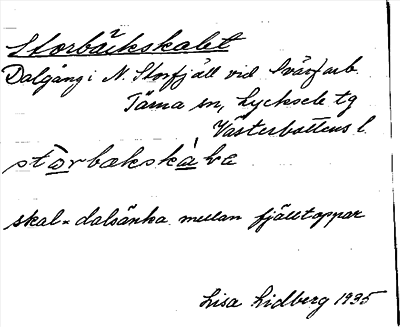 Storbäckskalet
Dalgång i N. Storfjäll vid Tvärsjarb.
Tärna sn, Lycksele tg
Västerbottens l.
storbakskàla
skal = dalsänka mellan fjälltoppar
Lisa Lidberg 1935